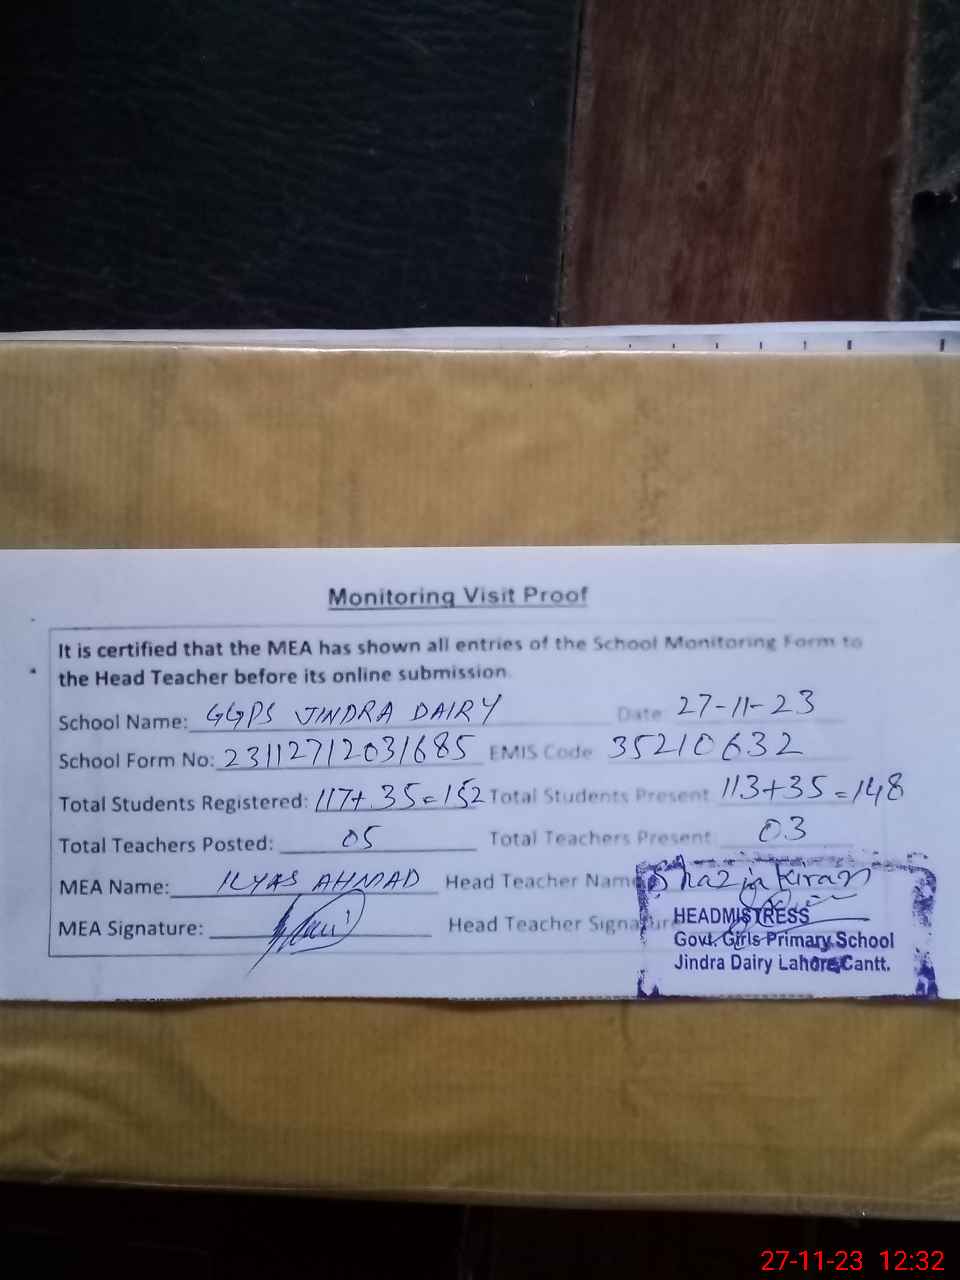 Monitoring Visit Proof
It is certified that the MEA has shown all entries of the School Monitoring Form to
the Head Teacher before its online submission.
School Name: GGPS JINDRA DAIRY Date: 27-11-23
School Form No: 23112712031685 EMIS Code: 35210632
Total Students Registered: 117+35=152 Total Students Present 113+35=148
Total Teachers Posted: 05 Total Teachers Present: 03
MEA Name: ILYAS AHMAD Head Teacher Name Shazia Kiran
MEA Signature: Head Teacher Signature
HEADMISTRESS
Govt. Girls Primary School
Jindra Dairy Lahore Cantt.
27-11-23 12:32